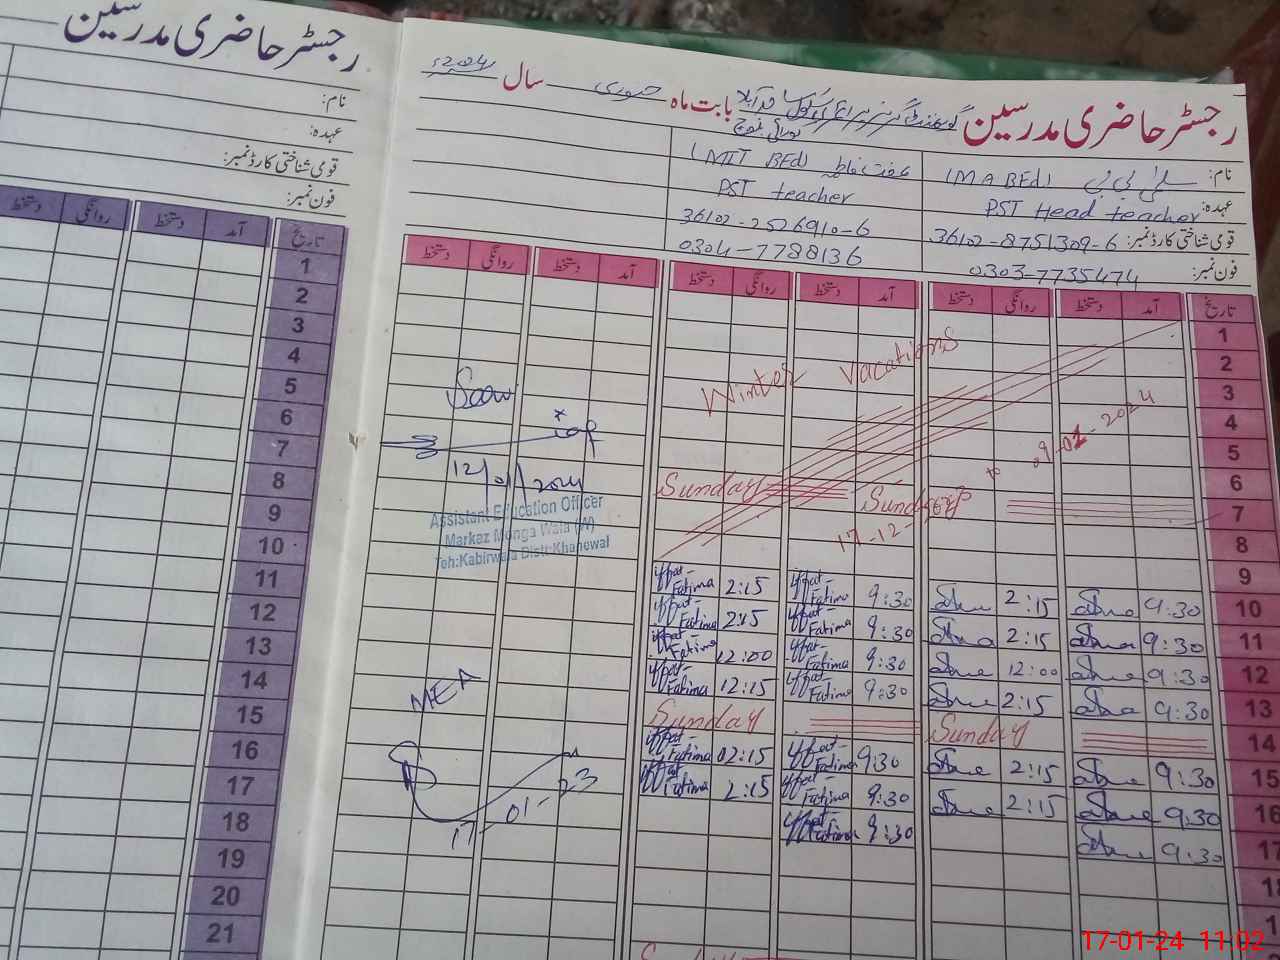 رجسٹر حاضری مدرسین
نام:
عہدہ:
قومی شناختی کارڈ نمبر:
فون نمبر:
تاریخ آمد دستخط روانگی دستخط
1
2
3
4
5
6
7
8
9
10
11
12
13
14
15
16
17
18
19
20
21
رجسٹر حاضری مدرسین
بابت ماہ جنوری سال 2024ء
نام: (M A BEd)
(MIT BEd) عفت فاطمہ
عہدہ: PST Head teacher
PST teacher
قومی شناختی کارڈ نمبر: 36102-8751309-6
36102-2526910-6
فون نمبر: 0303-7735474
0304-7788136
تاریخ آمد دستخط روانگی دستخط آمد دستخط روانگی دستخط آمد دستخط روانگی دستخط
1
2
3
4
5
6
7
8
9
Winter Vacations
17-12-
to 09-01-2024
Sunday Sunday
Seen
12/01/2024
Assistant Education Officer
Markaz Monga Wala (W)
Teh:Kabirwala Distt:Khanewal
10 9:30 2:15 Iffat Fatima 9:30 Iffat Fatima 2:15
11 9:30 2:15 Iffat Fatima 9:30 Iffat Fatima 2:15
12 9:30 12:00 Iffat Fatima 9:30 Iffat Fatima 12:00
13 9:30 2:15 Iffat Fatima 9:30 Iffat Fatima 12:15
14 Sunday Sunday
15 9:30 2:15 Iffat Fatima 9:30 Iffat Fatima 02:15
16 9:30 2:15 Iffat Fatima 9:30 Iffat Fatima 2:15
17 9:30 Iffat Fatima 9:30
MEA
17-01-23
17-01-24 11:02